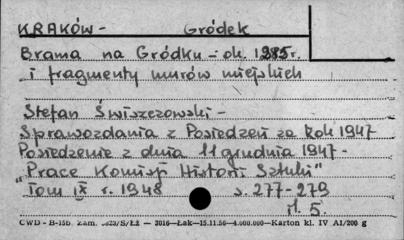 KRAKÓW - Gródek
Brama na Gródku - ok. 1285 r.
i fragmenty murów miejskich
Stefan Świszczowski -
Sprawozdania z Posiedzeń za rok 1947
Posiedzenie z dnia 11 grudnia 1947 -
"Prace Komisji Historii Sztuki"
Tom IX r. 1948 s. 277-279
il. 5.
CWD - B-15b. Zam. S/Łż — 2016—Łak—15.11.56—4.000.000—Karton kl. IV A1/200 g